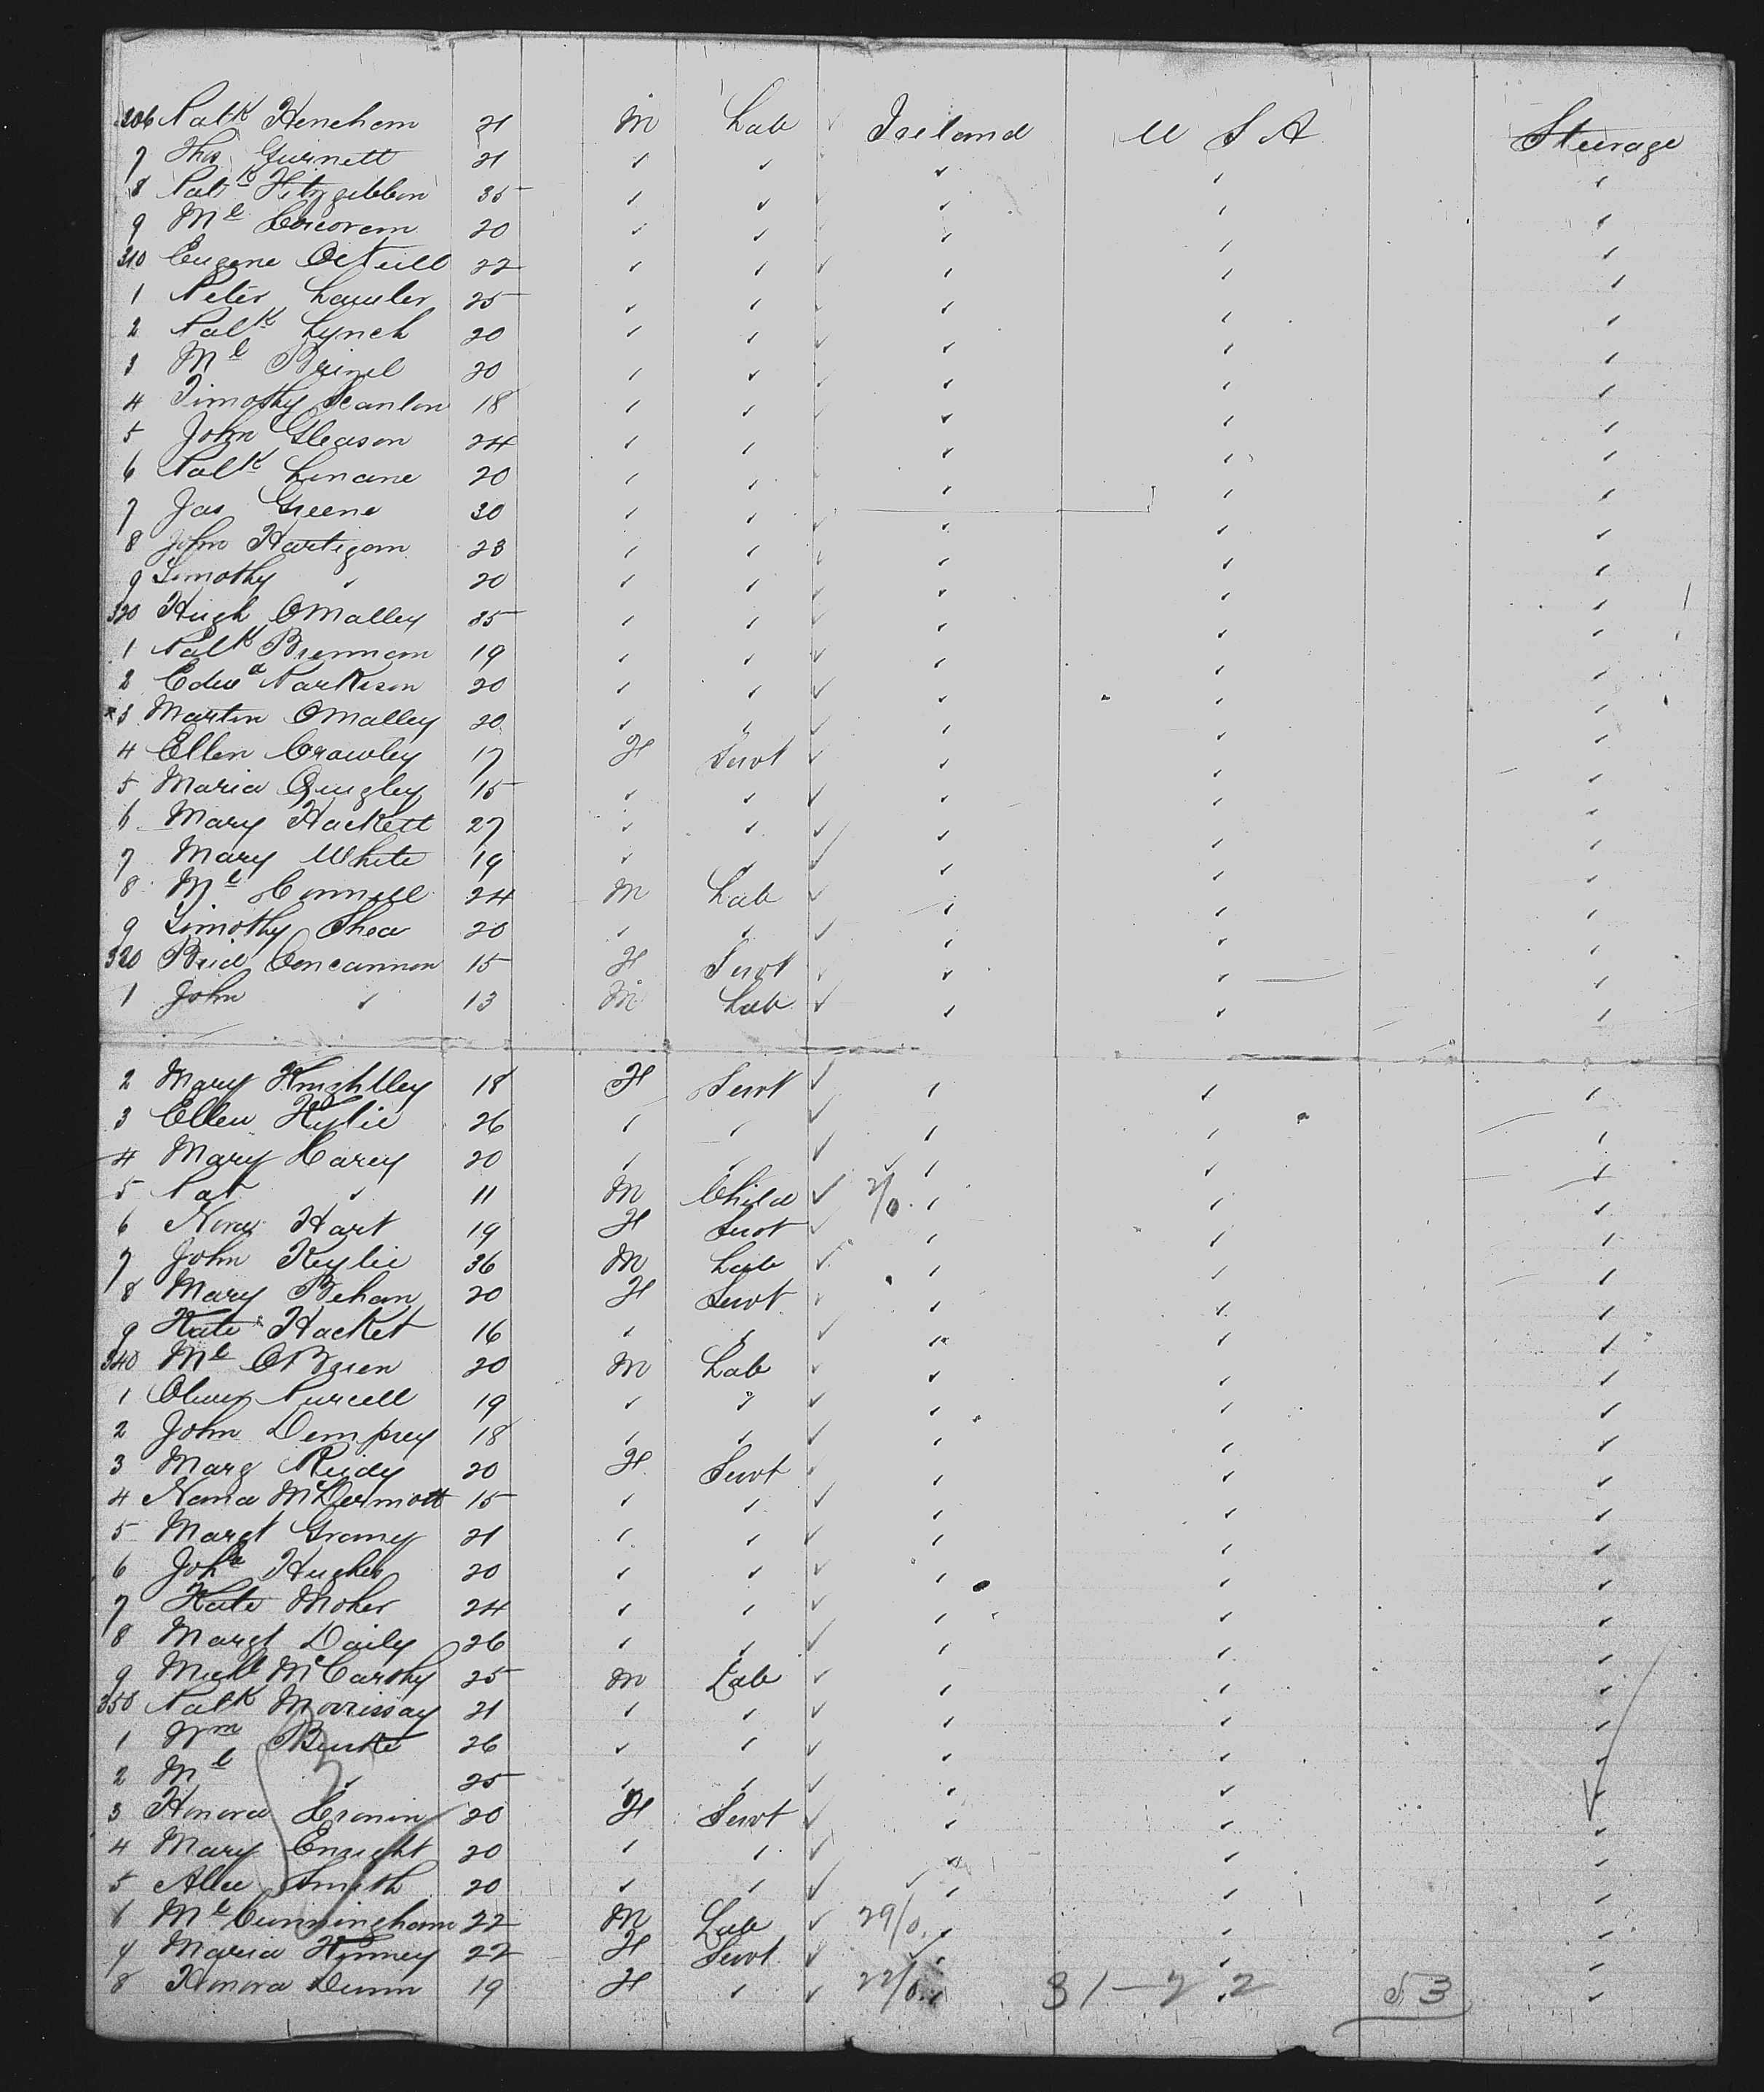 306 Patk Henehan 21 M Lab ✓ Ireland U S A Steerage
7 Thos Gurnett 21 " " " " "
8 Patk Fitzgibbon 35 " " " " "
9 Ml Corcoran 20 " " " " "
310 Eugene ONeill 22 " " ✓ " " "
1 Peter Lawler 25 " " ✓ " " "
2 Patk Lynch 20 " " ✓ " " "
3 Ml 20 " " ✓ " " "
4 Timothy Scanlon 18 " " " " "
5 John Gleason 24 " " " " "
6 Patk Linane 20 " " ✓ " " "
7 Jas Greene 30 " " ✓ " " "
8 John Hartigan 23 " " ✓ " " "
9 Timothy " 20 " " ✓ " " "
320 Hugh OMalley 35 " " ✓ " " "
1 Patk Brennan 19 " " ✓ " " "
2 Edwd Parkison 20 " " ✓ " " "
x3 Martin OMalley 20 " " ✓ " " "
4 Ellen Crawley 17 F Servt ✓ " " "
5 Maria Quigley 15 " " ✓ " " "
6 Mary Hackett 27 " " ✓ " " "
7 Mary White 19 " " ✓ " " "
8 Ml Connell 24 M Lab ✓ " " "
9 Timothy Shea 20 " " ✓ " " "
320 Brid Concannon 15 F Servt ✓ " " "
1 John " 13 M Lab ✓ " " "
2 Mary Knightley 18 F Servt ✓ " " "
3 Ellen Kylie 26 " " ✓ " " "
4 Mary Carey 20 " " ✓ " " "
5 Pat " 11 M Child ✓ 2/0. " " "
6 Nora Hart 19 F Servt ✓ " " "
7 John Kylie 36 M Lab ✓ " " "
8 Mary Behan 20 F Servt ✓ " " "
9 Kate Hacket 16 " " ✓ " " "
340 Ml OBrien 20 M Lab ✓ " " "
1 Oliver Purcell 19 " " ✓ " " "
2 John Dempsey 18 " " ✓ " " "
3 Marg Reidy 20 F Servt ✓ " " "
4 Nana McDermott 15 " " ✓ " " "
5 Margt 21 " " ✓ " " "
6 Joha Hughes 20 " " ✓ " " "
7 Kate Moher 24 " " ✓ " " "
8 Margt Daily 26 " " ✓ " " "
9 Michl McCarthy 25 M Lab ✓ " " "
350 Patk Morrissay 21 " " ✓ " " "
1 Wm Burke 26 " " ✓ " " "
2 Ml " 25 " " ✓ " " "
3 Honora Cronin 20 F Servt ✓ " " "
4 Mary Enright 20 " " ✓ " " "
5 Alice Smith 20 " " ✓ " " "
6 Ml Cunningham 22 M Lab ✓ 29/0. " " "
7 Maria Kinney 22 F Servt ✓ " " "
8 Honora Dunn 19 F " ✓ 22/0. " 31-22 53 "